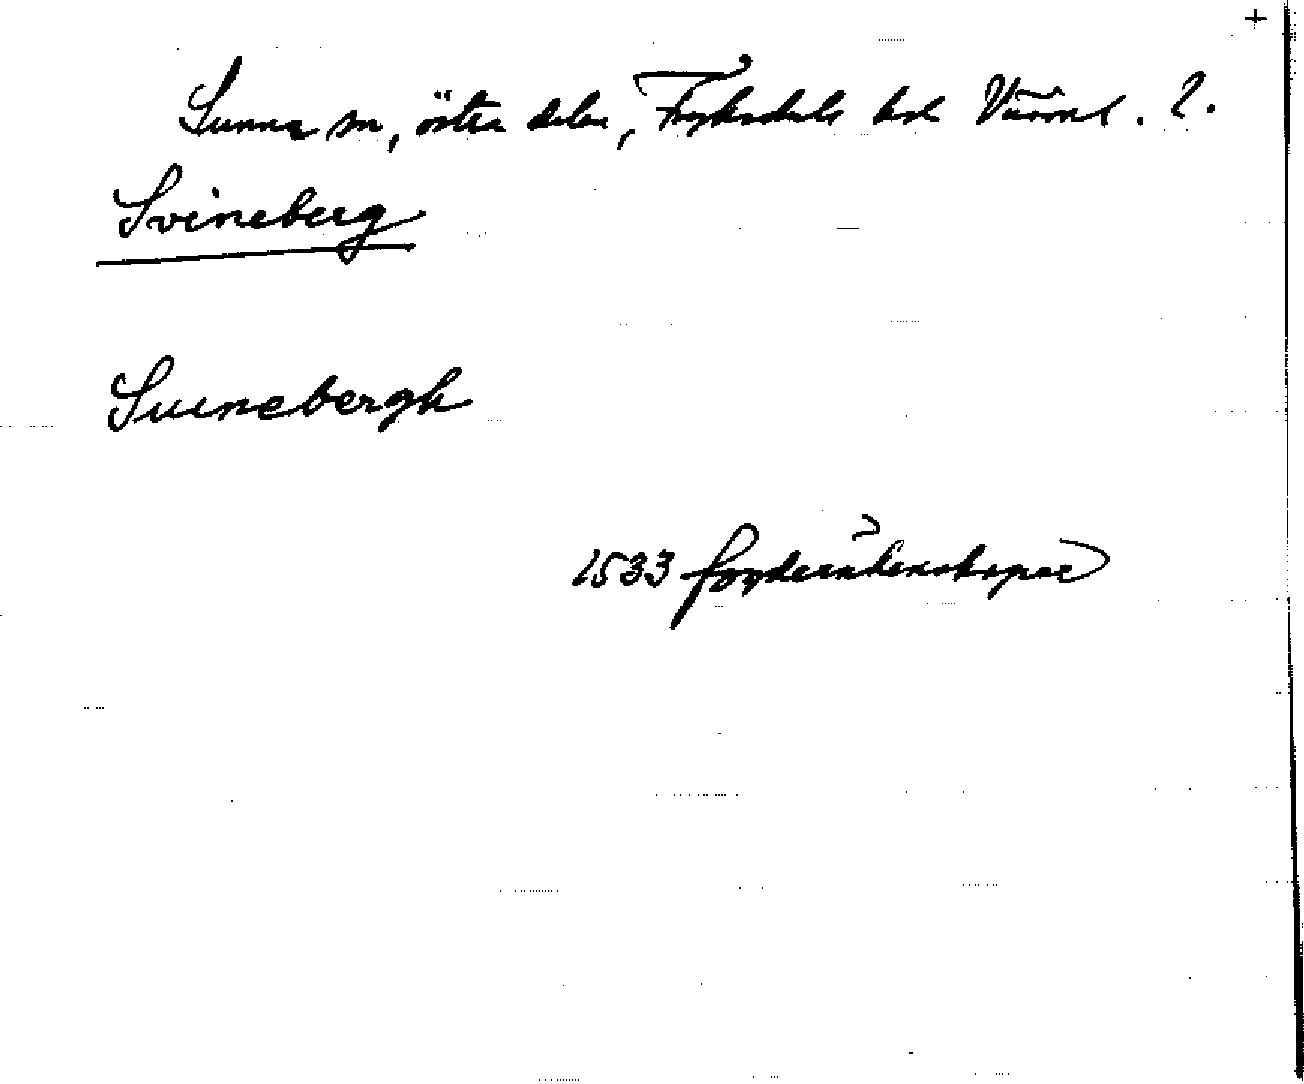 +
Sunne sn, östra delen, Fryksdals hd Värml. l.
Svineberg
Suinebergh
1533 fogderäkenskaper